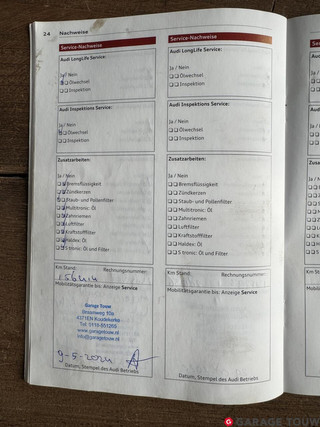 24 Nachweise
Service-Nachweise
Audi LongLife Service:
Ja / Nein
Ölwechsel
Inspektion
Audi Inspektions Service:
Ja / Nein
Ölwechsel
Inspektion
Zusatzarbeiten:
Ja / Nein
Bremsflüssigkeit
Zündkerzen
Staub- und Pollenfilter
Multitronic: Öl
Zahnriemen
Luftfilter
Kraftstofffilter
Haldex: Öl
S tronic: Öl und Filter
Km Stand: Rechnungsnummer:
Mobilitätsgarantie bis: Anzeige Service
Garage Touw
Stroomweg 10b
Tel. 0118-851260
www.garagetouw.nl
info@garagetouw.nl
9-5-2024
Datum, Stempel des Audi Betriebs
Service-Nachweise
Audi LongLife Service:
Ja / Nein
Ölwechsel
Inspektion
Audi Inspektions Service:
Ja / Nein
Ölwechsel
Inspektion
Zusatzarbeiten:
Ja / Nein
Bremsflüssigkeit
Zündkerzen
Staub- und Pollenfilter
Multitronic: Öl
Zahnriemen
Luftfilter
Kraftstofffilter
Haldex: Öl
S tronic: Öl und Filter
Km Stand: Rechnungsnummer:
Mobilitätsgarantie bis: Anzeige Service
Datum, Stempel des Audi Betriebs
GARAGE TOUW